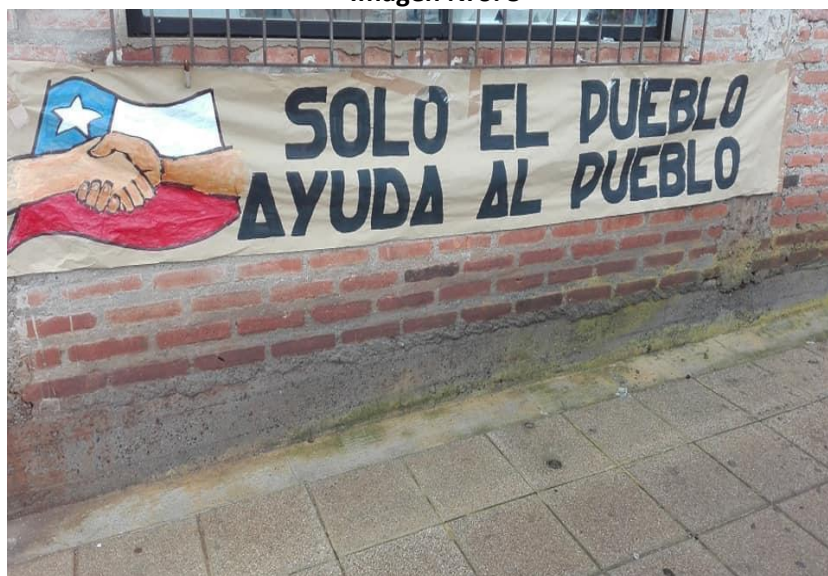 SOLO EL PUEBLO
AYUDA AL PUEBLO